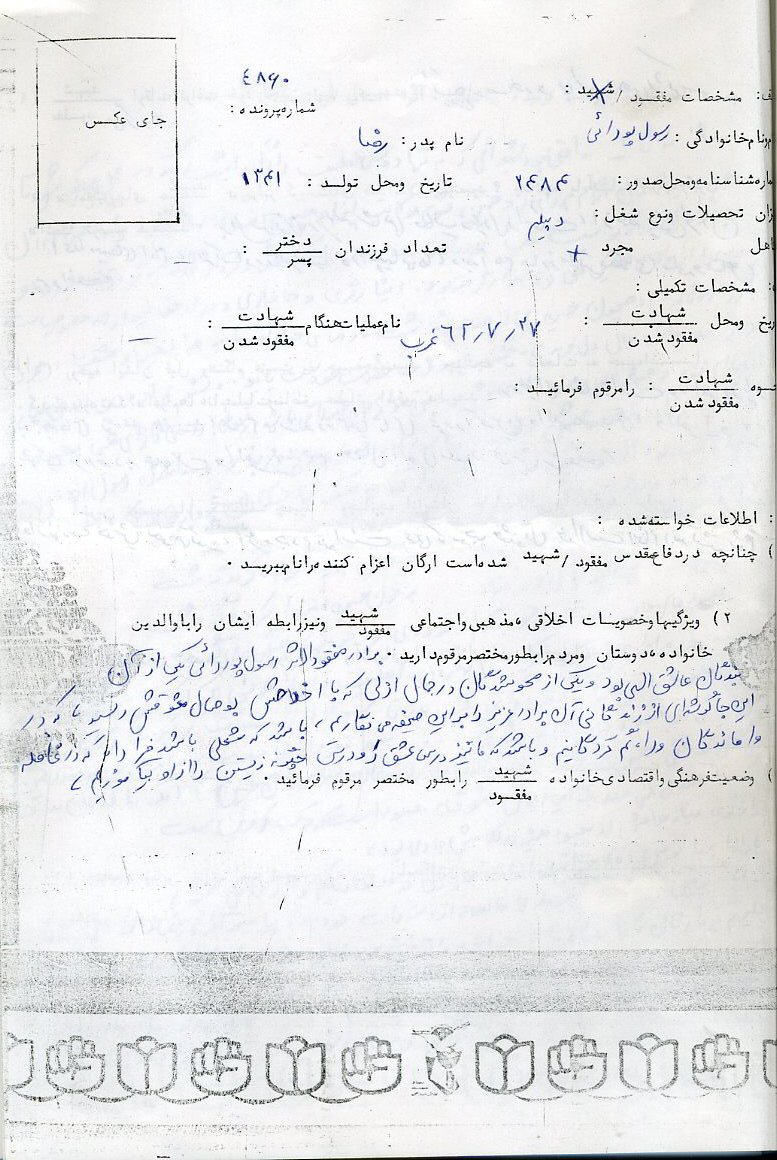 ۴۸۶۰
ف: مشخصات مفقود / شهید :
جای عکس
شماره پرونده :
نام خانوادگی : رسول پوررائی نام پدر : رضا
شماره شناسنامه و محل صدور : ۲۴۸۴ تاریخ ومحل تولد : ۱۳۴۱
زان تحصیلات ونوع شغل : دیپلم
اهل مجرد + تعداد فرزندان دختر / پسر : —
: مشخصات تکمیلی :
ریخ ومحل شهادت / مفقود شدن : ۶۲٫۷٫۲۷ غرب نام عملیات هنگام شهادت / مفقود شدن : —
حوه شهادت / مفقود شدن : رامرقوم فرمائید :
: اطلاعات خواسته شده :
) چنانچه دردفاع مقدس مفقود / شهید شده است ارگان اعزام کننده رانام ببرید .
۲) ویژگیها وخصوصیات اخلاقی ، مذهبی واجتماعی شهید / مفقود ونیز رابطه ایشان راباوالدین
خانواده ، دوستان ومردم رابطور مختصر مرقوم دارید . برادر مفقودالاثر رسول پوررائی یکی از آن
عاشق الهی بود ویکی از در جمال ازلی که با اخلاصش بوصال معشوقش رسید ، که در
این جا گوشه‌ای از زندگانی آن برادر عزیز را بر این صحیفه می نگاریم ، باشد که مشعلی باشد فرا راه که در قافله
واماندگان و گم کردگانیم و باشد که ما نیز درس عشق و درس چگونه زیستن را از او بیاموزیم ،
) وضعیت فرهنگی واقتصادی خانواده شهید / مفقود رابطور مختصر مرقوم فرمائید .